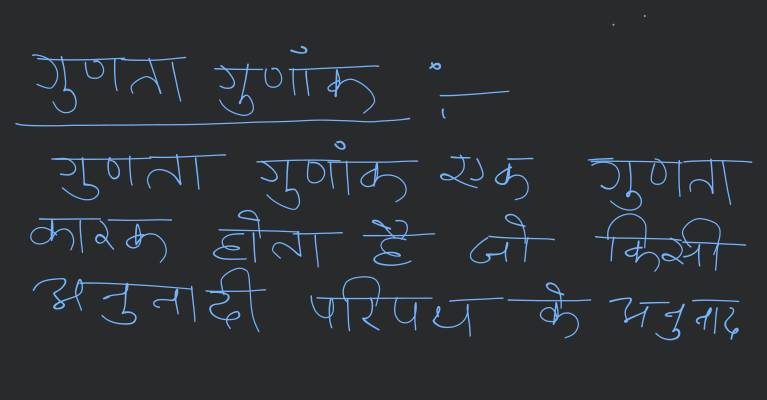 गुणता गुणांक :-
गुणता गुणांक एक गुणता
कारक होता है जो किसी
अनुनादी परिपथ के अनुनाद